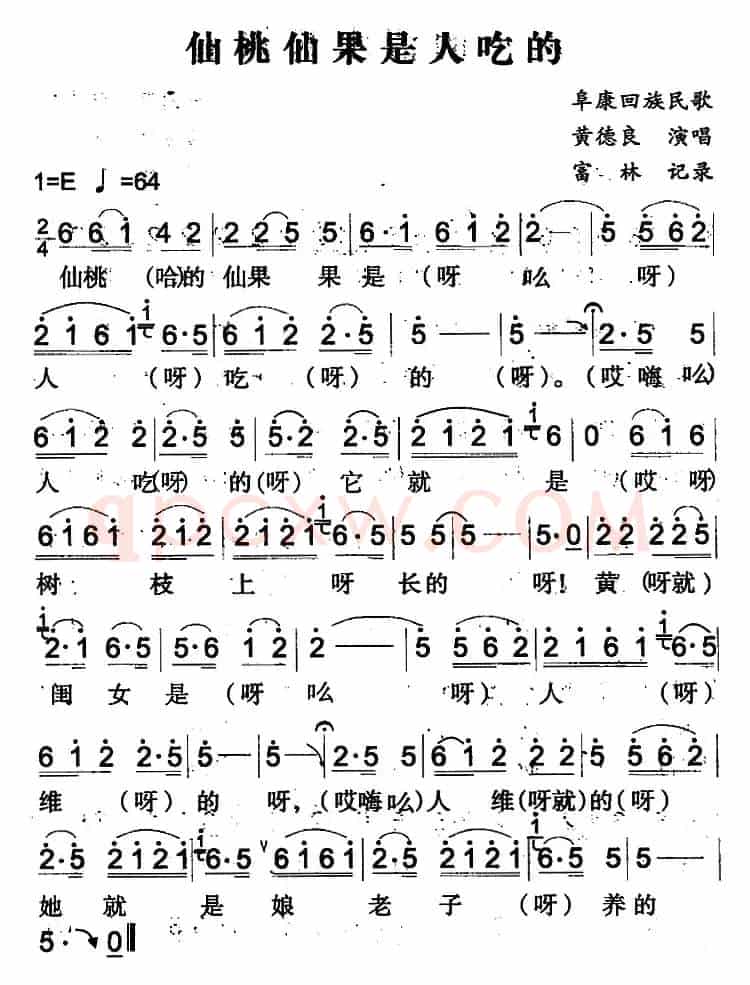 仙桃仙果是人吃的
阜康回族民歌
黄德良 演唱
1=E ♩=64
富林 记录
2/4 6 6 1 4 2 | 2 2 5 5 | 6·1 6 1 2 | 5 5 6 2
仙桃 (哈)的 仙果 果是 (呀 么 呀)
2 1 6 1 6·5 | 6 1 2 2·5 | 5 — | 5 — | 2·5 5
人 (呀) 吃 (呀) 的 (呀)。(哎嗨么)
6 1 2 2·5 | 5 5·2 2 | 2 1 2 1 6 | 0 6 1 6
人 吃(呀) 的(呀) 它 就 是 (哎呀)
6 1 6 1 2 1 2 | 2 1 2 1 6·5 | 5 — | 5·0 2 2 2 5
树 枝 上 呀 长的 呀! 黄 (呀就)
2·1 6·5 | 5·6 1 2 | 2 — | 5 5 5 2 | 2 1 6 1 6·5
闺 女 是 (呀 么 呀) 人 (呀)
6 1 2 2·5 | 5 — | 5 — | 2·5 5 | 6 1 2 2·5 | 5 5 6 2
维 (呀) 的 呀, (哎嗨么) 人 维(呀就)的(呀)
2·5 2 1 2 1 | 6·5 6 1 6 1 | 2 1 2 2 1 2 1 | 6·5 5 | 5 —
她 就 是 娘 老 子 (呀) 养的
5· 0
qpcxw.com